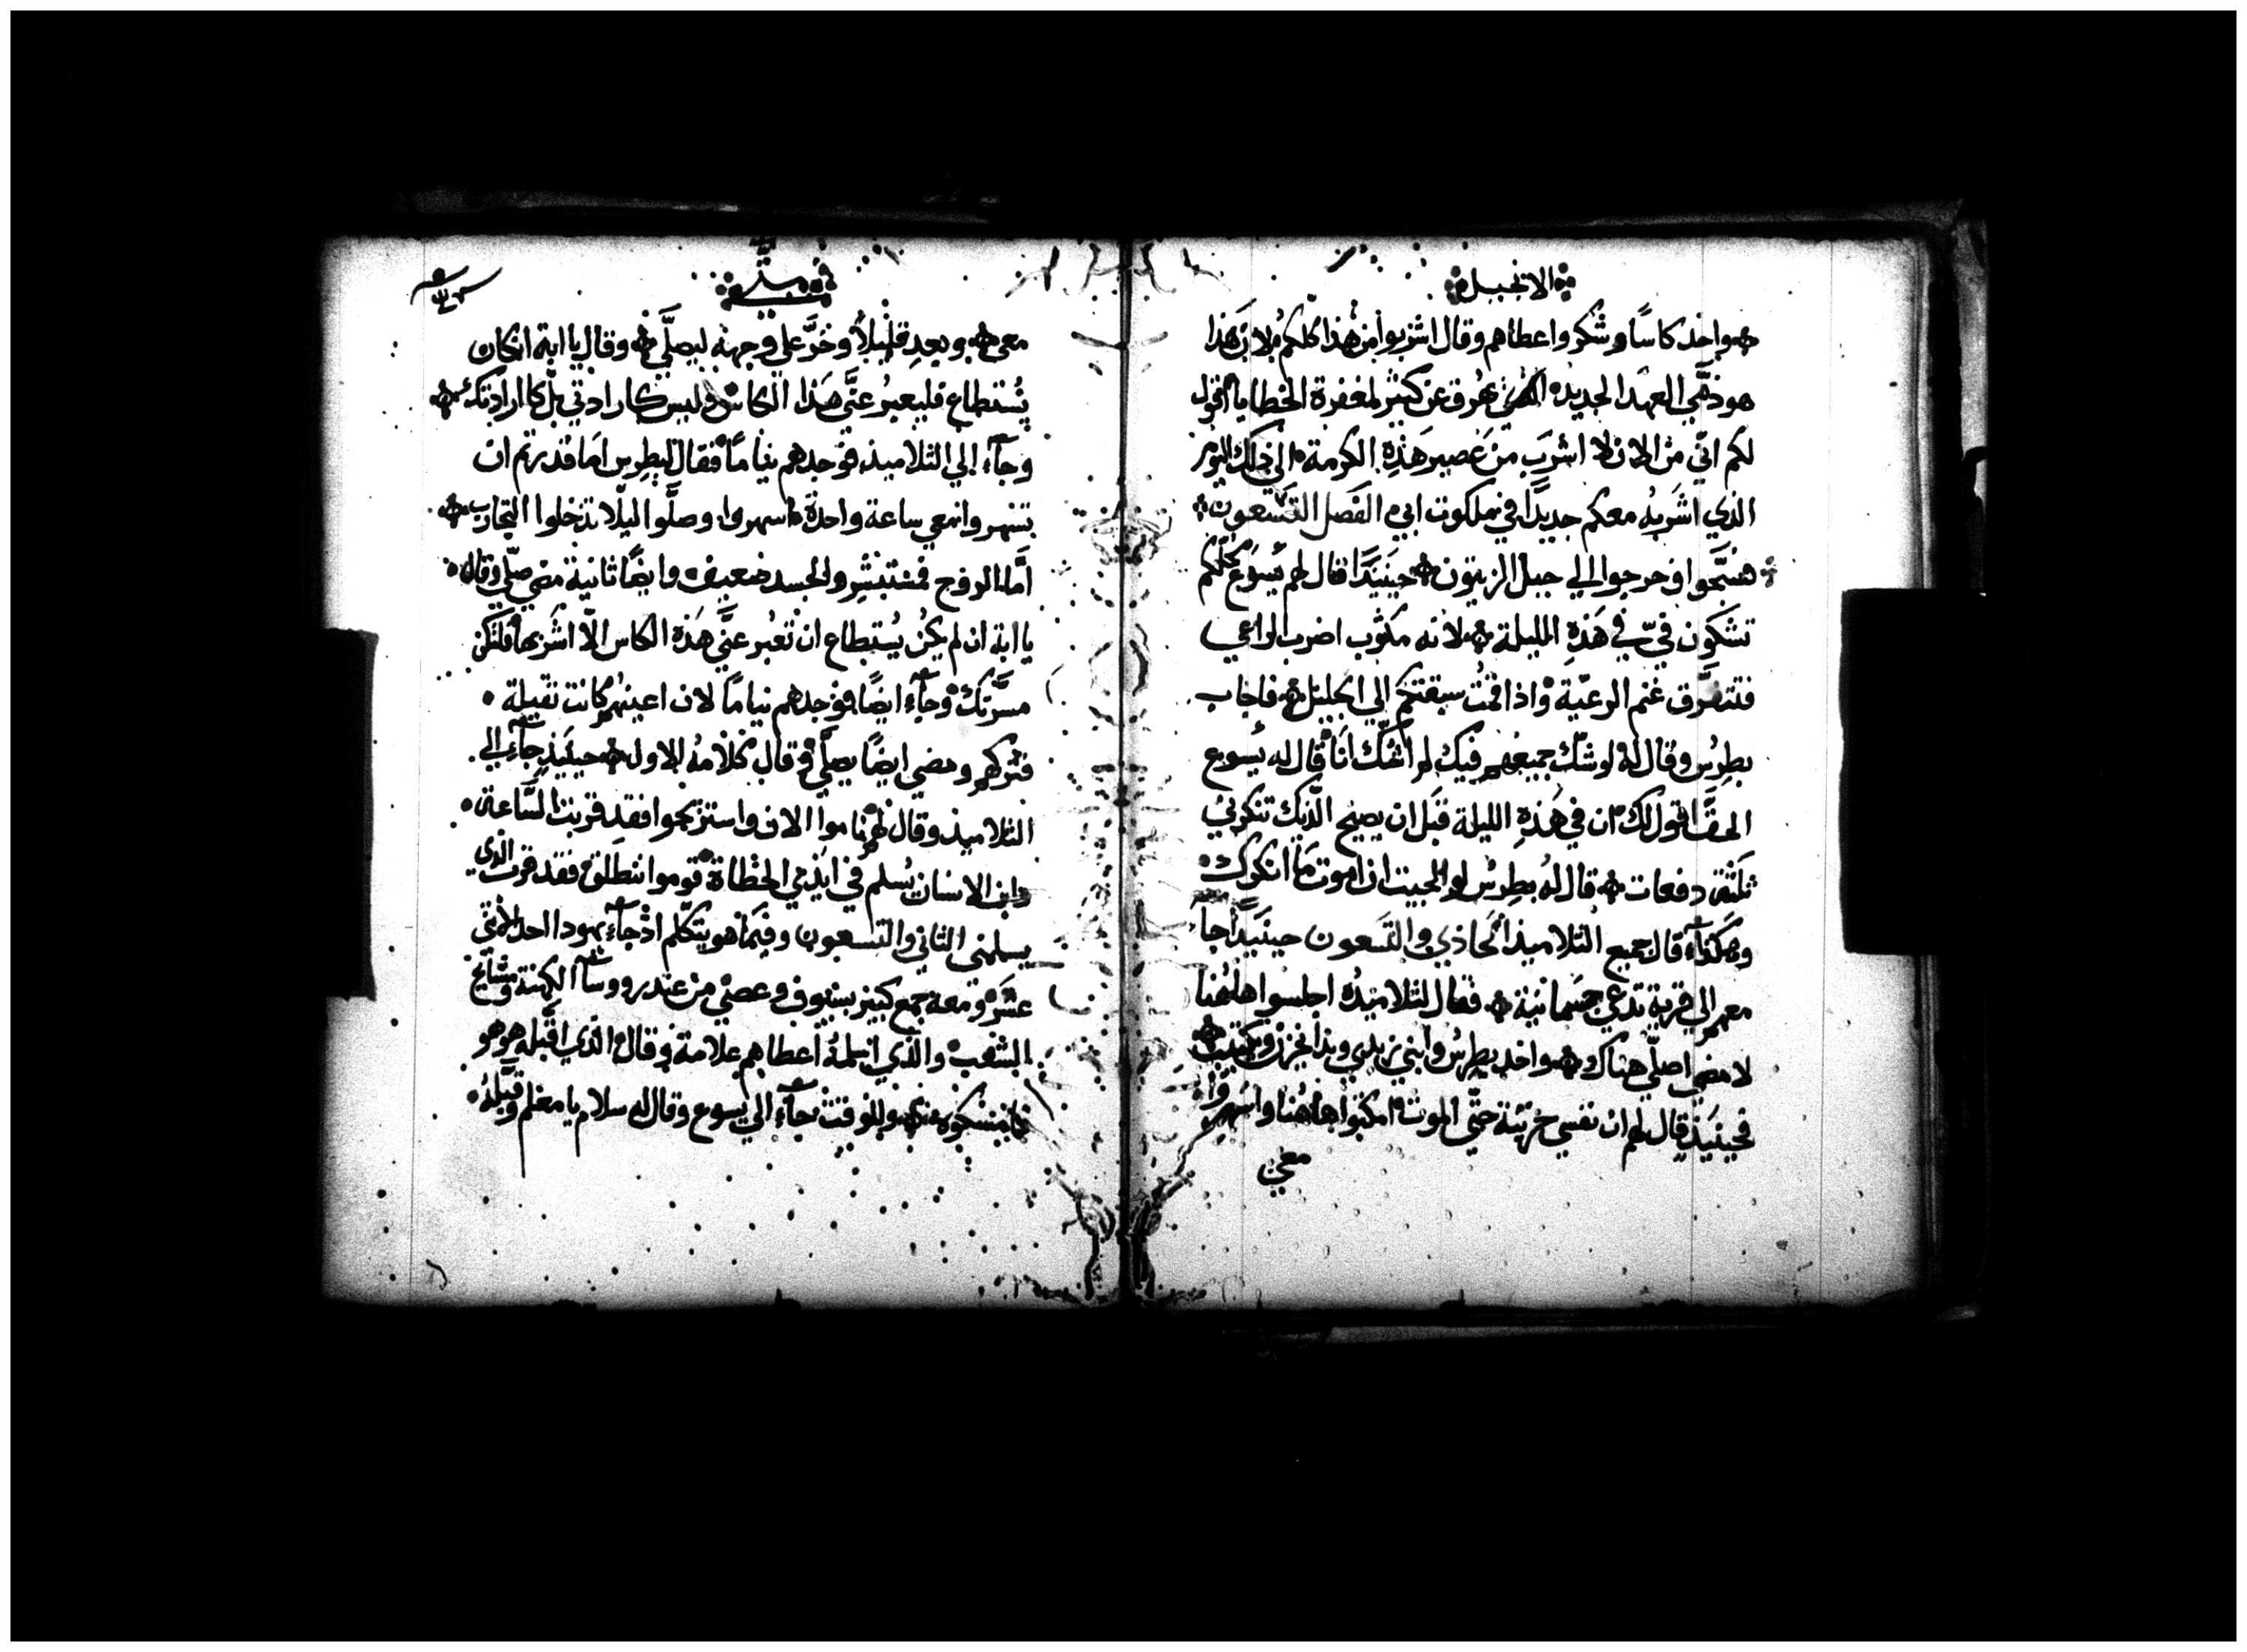 الانجيل
واخذ كاسًا وشكر واعطاهم وقال اشربوا من هذا كلكم لان هذا
هو دمي العهد الجديد الذي يهرق عن كثير لمغفرة الخطايا اقول
لكم اني من الان لا اشرب من عصير هذه الكرمة الى ذلك اليوم
الذي اشربه معكم جديدًا في ملكوت ابي الفصل التسعون
فسبّحوا وخرجوا الي جبل الزيتون حينيذًا قال لهم يسوع كلكم
تشكون فيّ في هذه الليلة لانه مكتوب اضرب الراعي
فتتفرّق غنم الرعيّة واذا قمتُ سبقتكم الي الجليل فاجاب
بطرس وقال له لوشكّ جميعهم فيك لم اشك انا قال له يسوع
الحقّ اقول لك ان في هذه الليلة قبل ان يصيح الديك تنكرني
ثلثة دفعات قال له بطرس لو الجيت ان اموت ما انكرك
وهكذا قال جميع التلاميذ الحاذي والتسعون حينيذًا جآ
معهم الي قرية تدعي جسمانية فقال لتلاميذه اجلسوا هاهنا
لامضي اصلّي هناك واخد بطرس وابني زبدي وبدا يحزن ويكتيب
فحينيذ قال لهم ان نفسي حزينة حتّي الموت امكتوا هاهنا واسهروا
معي
في متي
معي وبعد قليلاً وخرّ علي وجهه ليصلّي وقال يا ابة انكان
يُستطاع فليعبر عنّي هذا الكاس وليس كارادتي بل كارادتك
وجآء الي التلاميذ فوجدهم نيامًا فقال لبطرس اما قدرتم ان
تسهروا معي ساعة واحدة اسهروا وصلّوا ليلا تدخلوا التجارب
امّا الروح فمستبشر والجسد ضعيف وايضًا ثانية مضي صلّي وقال
يا ابة ان لم يكن يُستطاع ان تعبر عنّي هذه الكاس الّا اشربها فلتكن
مسرّتك وجآء ايضًا فوجدهم نيامًا لان اعينهم كانت ثقيلة
فتركهم ومضي ايضًا يصلّي وقال كلامه الاول حينيذ جآء الي
التلاميذ وقال لهم ناموا الان واستريحوا فقد قربت السّاعة
وابن الانسان يُسلم في ايدي الخطاة قوموا ننطلق فقد قرب الذي
يسلمني الثاني والتسعون وفيما هو يتكلّم اذ جآء يهودا احد الاثني
عشر ومعه جمع كبير بسيوف وعصي من عند رووسا الكهنة ومشايخ
الشعب والّذي اسلمهُ اعطاهم علامة وقال الذي اقبّله هو هو
فامسكوه وللوقت جآء الي يسوع وقال له سلام يا معلم وقبّله